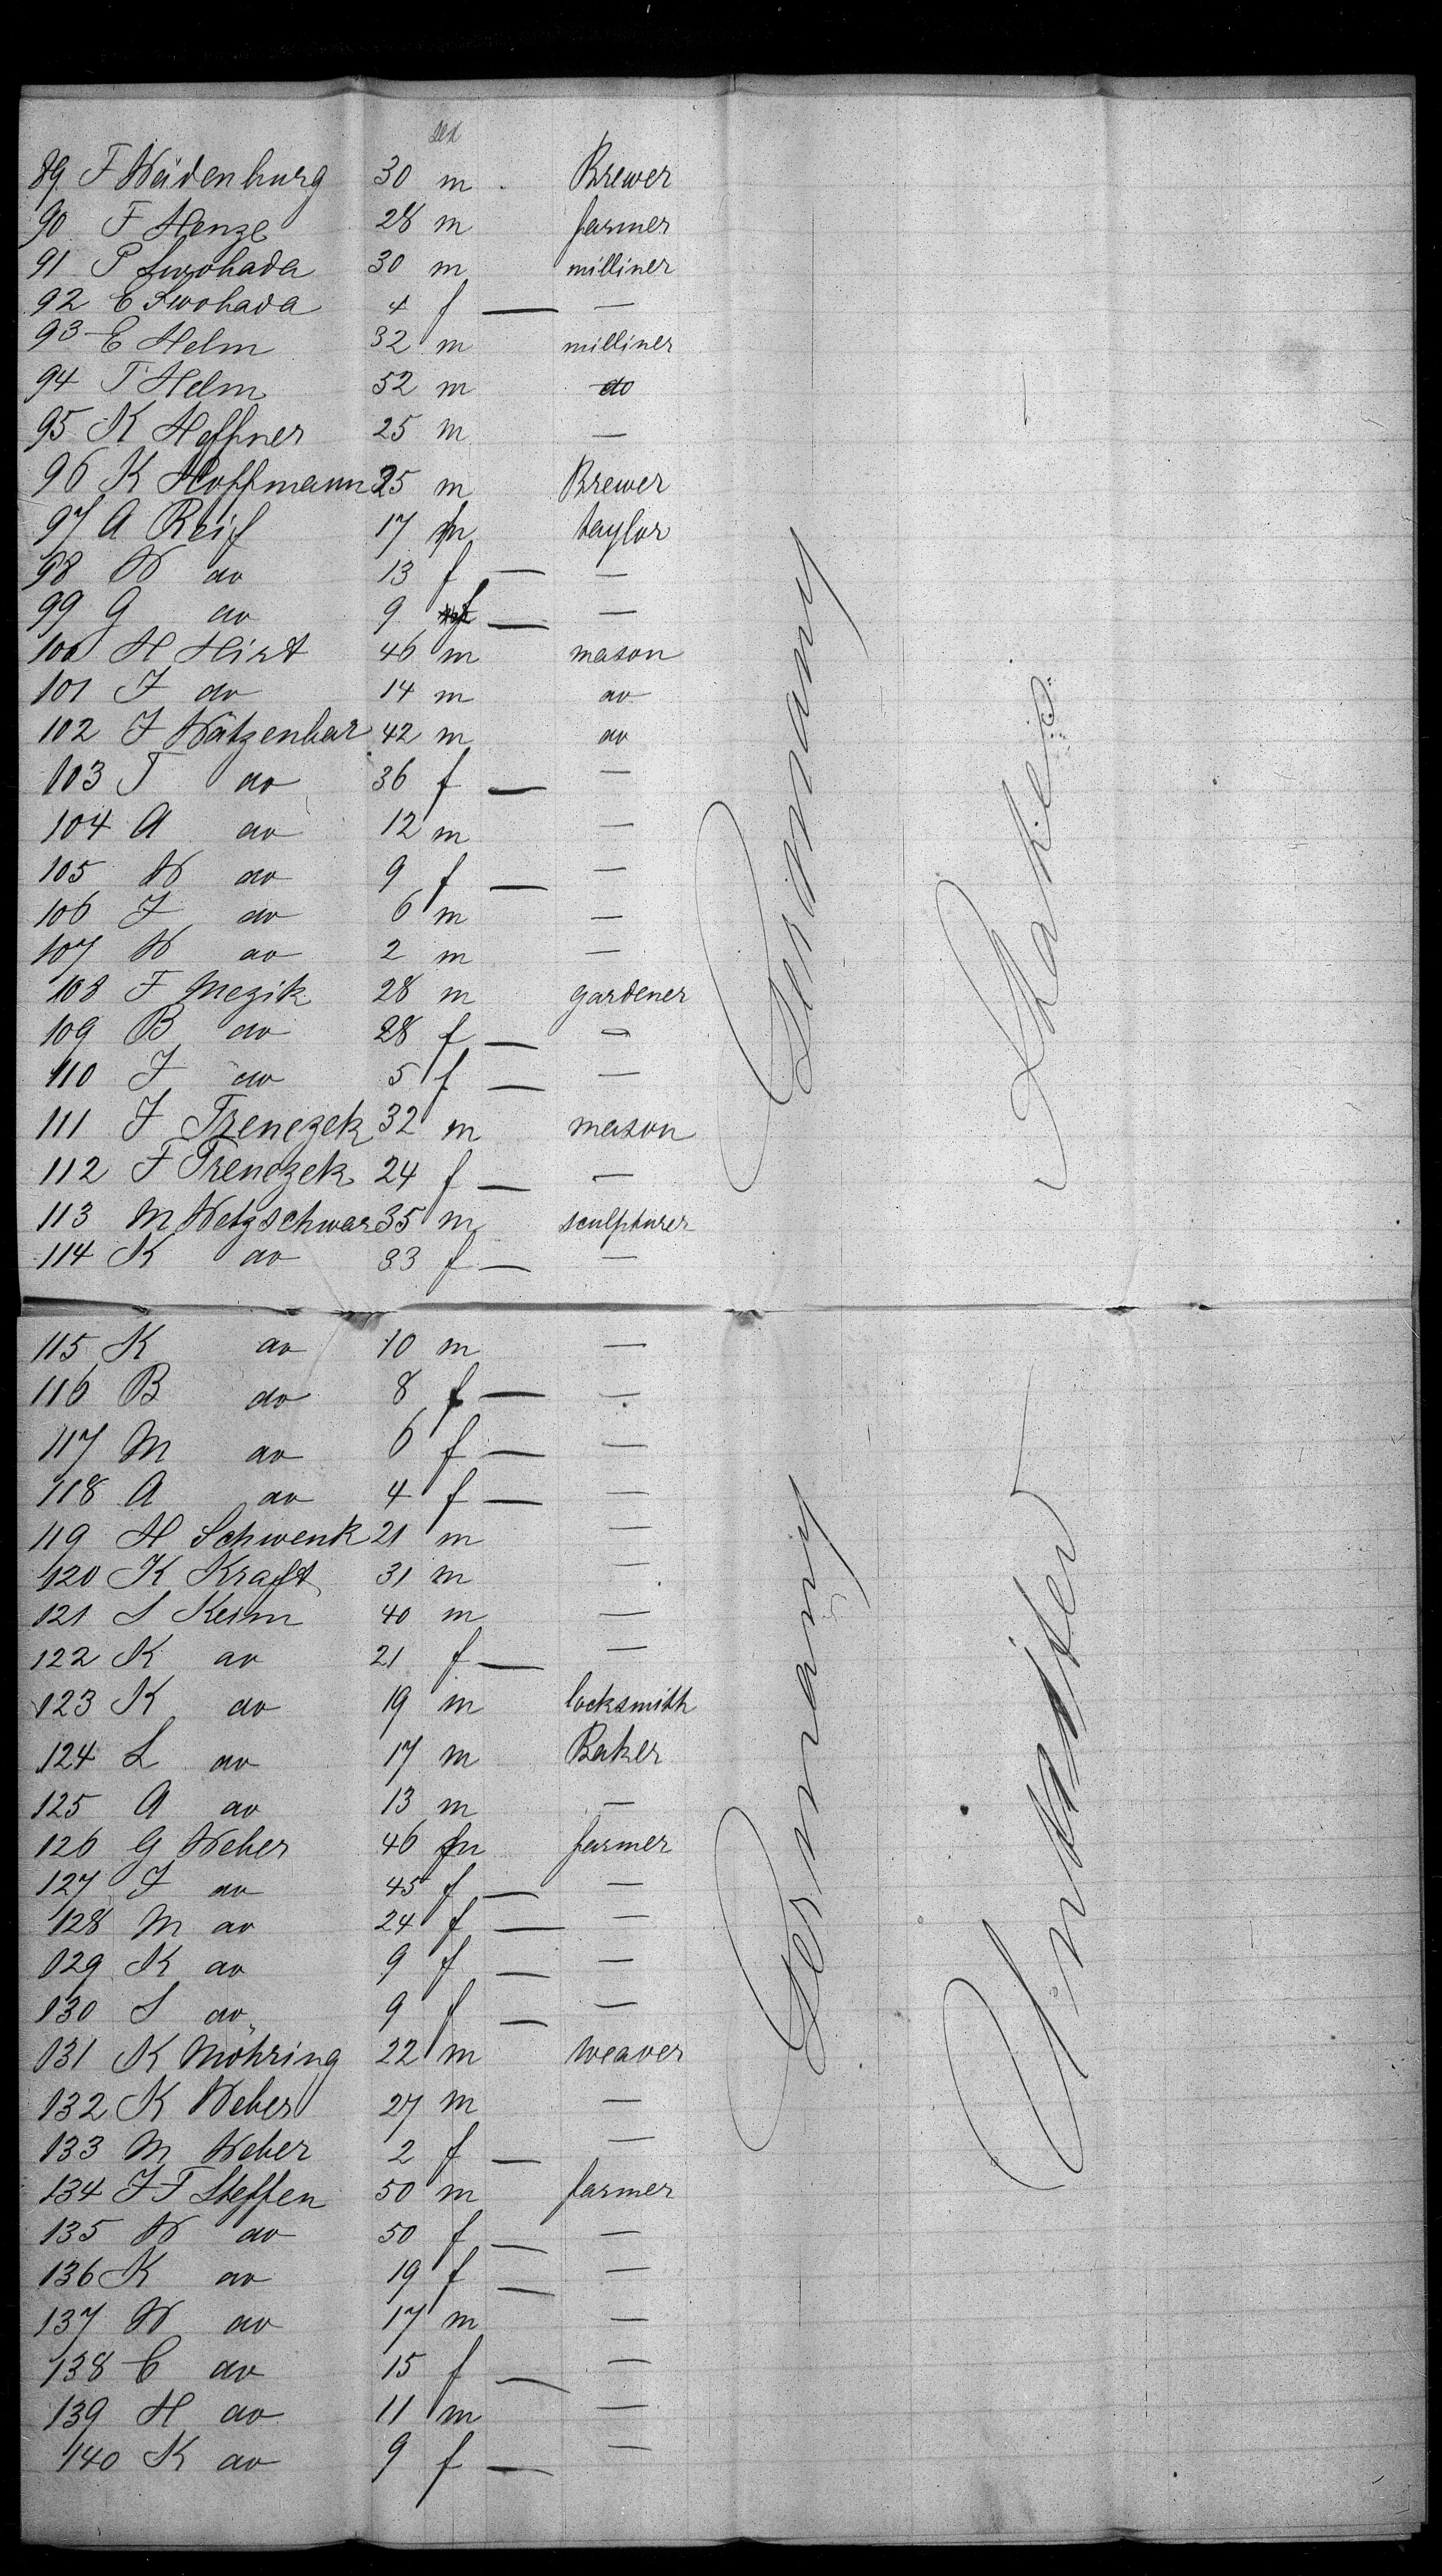 sex
89 F Weidenburg 30 m Brewer
90 F Henze 28 m farmer
91 P Swohada 30 m milliner
92 E Swohada 4 f — —
93 E Helm 32 m milliner
94 T Helm 52 m do
95 K Heffner 25 m —
96 K Hoffmann 25 m Brewer
97 A Reif 17 m taylor
98 W do 13 f — —
99 G do 9 f — —
100 H Hirt 46 m mason
101 J do 14 m do
102 J Wätzenbar 42 m do
103 T do 36 f — —
104 A do 12 m —
105 W do 9 f — —
106 J do 6 m —
107 W do 2 m —
108 F Mezik 28 m gardener
109 B do 28 f — —
110 J do 5 f — —
111 J Trenczek 32 m mason
112 F Trenczek 24 f — —
113 M Wetzschwar 35 m sculpturer
114 K do 33 f — —
115 K do 10 m —
116 B do 8 f — —
117 M do 6 f — —
118 A do 4 f — —
119 H Schwenk 21 m —
120 K Kraft 31 m —
121 S Keim 40 m —
122 K do 21 f — —
123 K do 19 m locksmith
124 L do 17 m Baker
125 A do 13 m —
126 G Weber 46 m farmer
127 J do 45 f — —
128 M do 24 f — —
129 K do 9 f — —
130 S do 9 f — —
131 K Möhring 22 m weaver
132 K Weber 27 m —
133 M Weber 2 f — —
134 J F Steffen 50 m farmer
135 W do 50 f — —
136 K do 19 f — —
137 W do 17 m —
138 C do 15 f — —
139 H do 11 m —
140 K do 9 f — —
Germany
Germany